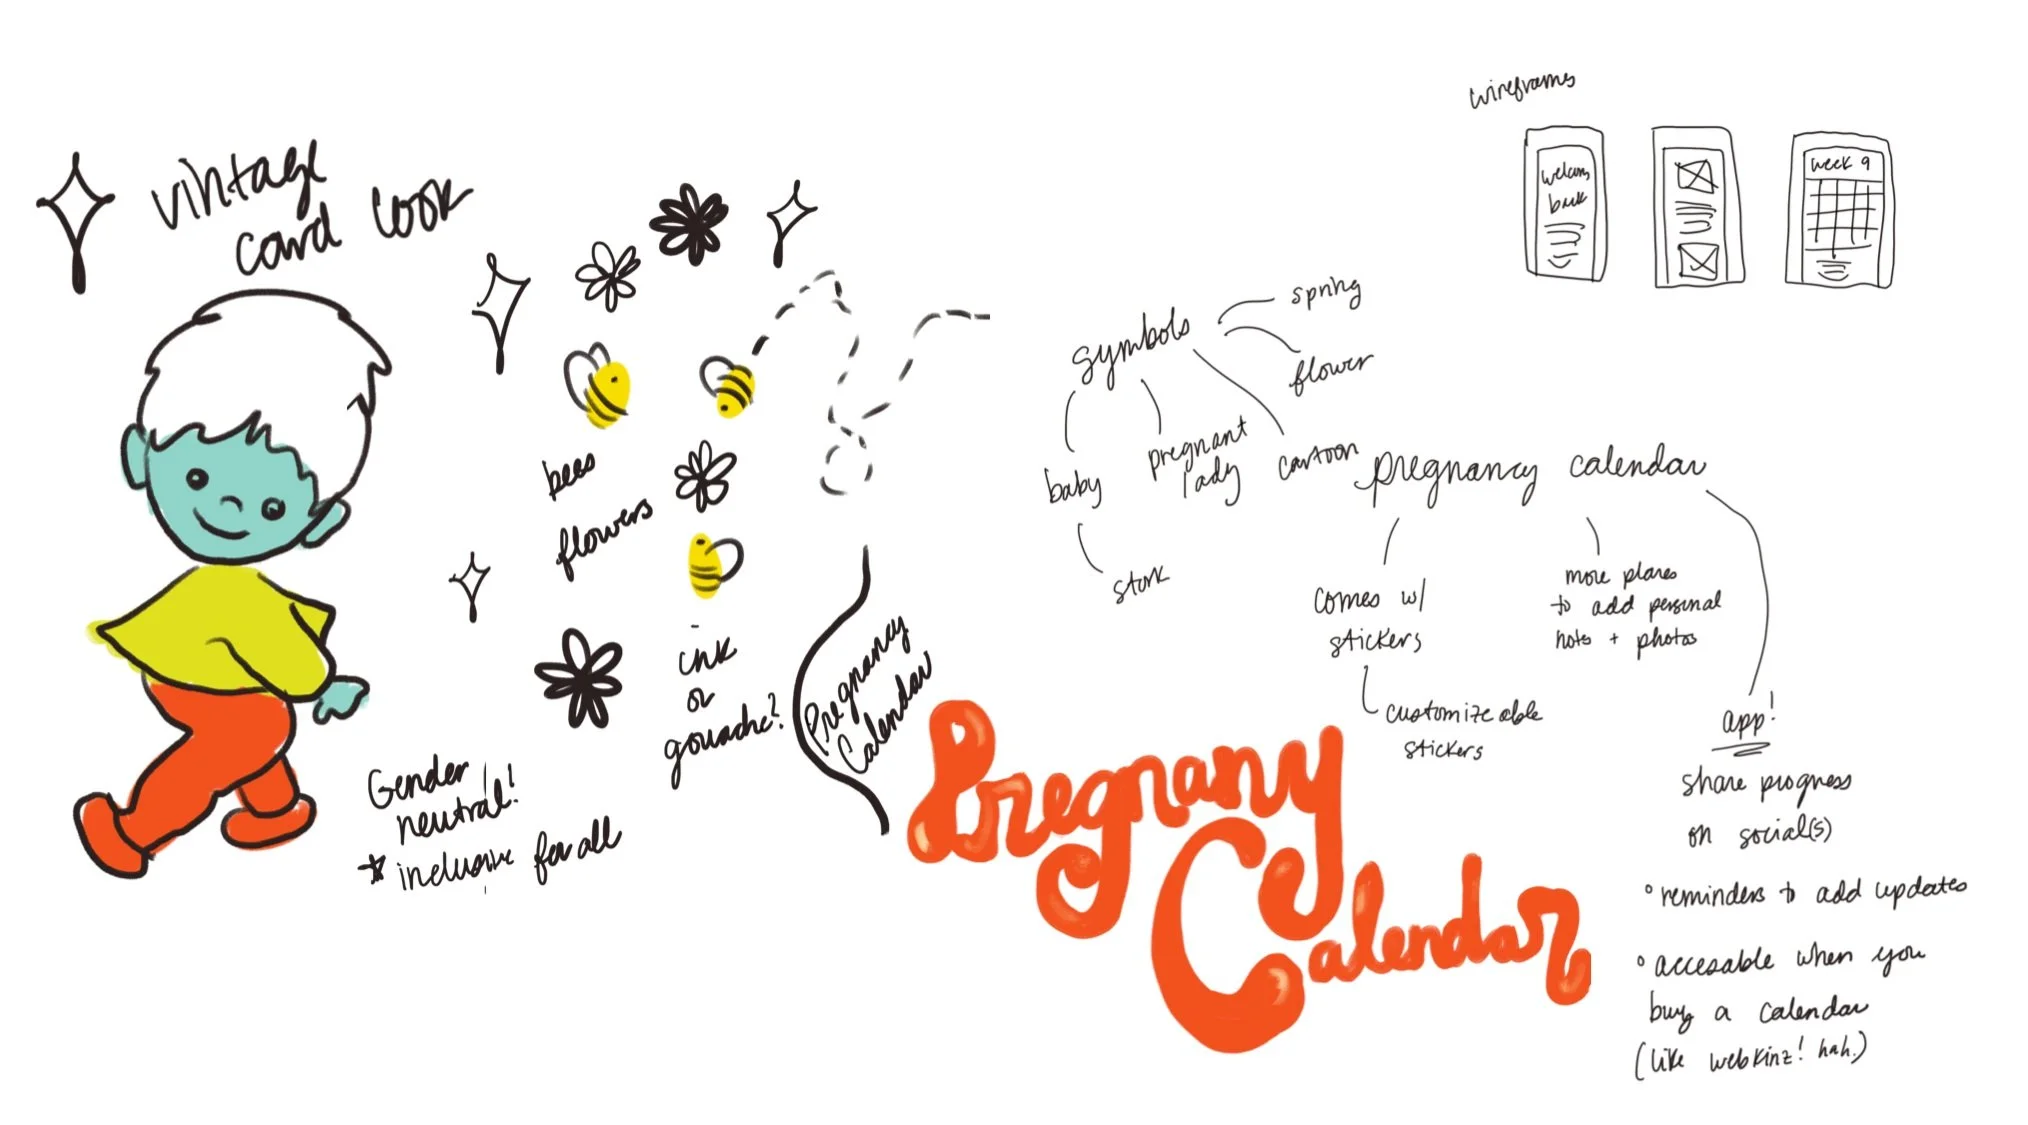 vintage
card look
bees
flowers
ink
or
gouache?
Gender
neutral!
* inclusive for all
Pregnancy
Calendar
Pregnancy
Calendar
wireframes
welcome
back
week 9
symbols
spring
flower
baby
pregnant
lady
cartoon
stork
pregnancy calendar
comes w/
stickers
customizeable
stickers
more places
to add personal
note + photos
app!
share progress
on social(s)
° reminders to add updates
° accesable when you
buy a calendar
(like webkinz! hah.)